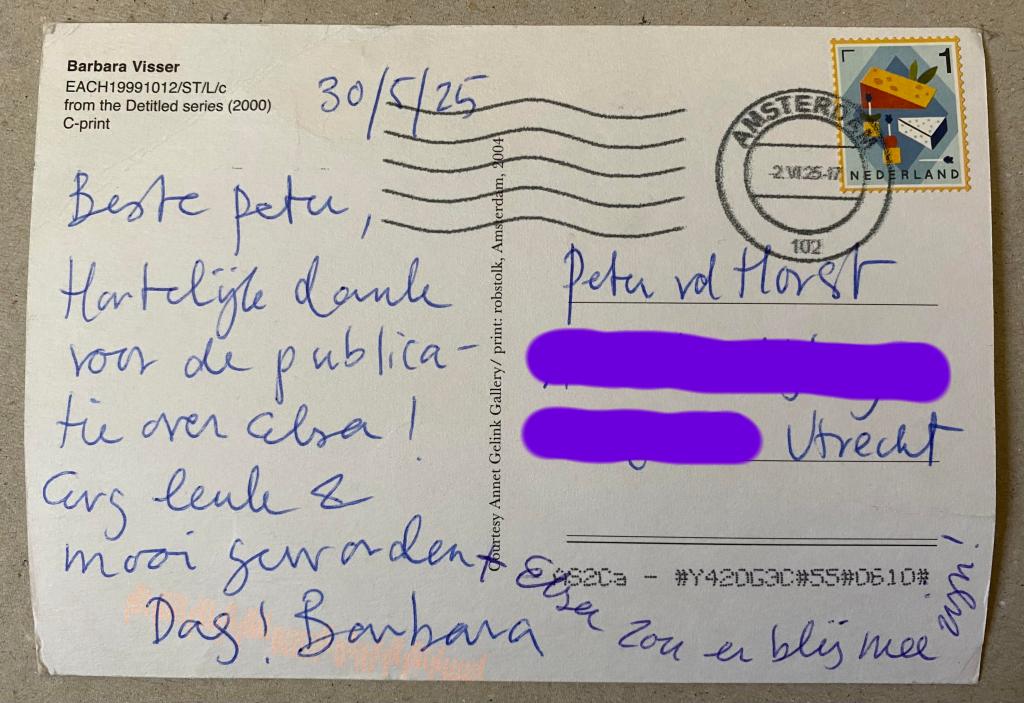 Barbara Visser
EACH19991012/ST/L/c
from the Detitled series (2000)
C-print
30/5/25
Beste Peter,
Hartelijk dank
voor de publica-
tie over Elsa!
Erg leuk &
mooi geworden + Elsa zou er blij mee zijn!
Dag! Barbara
Courtesy Annet Gelink Gallery/ print: robstolk, Amsterdam, 2004
1
NEDERLAND
AMSTERDAM
-2.VI.25-17
102
Peter vd Horst
Utrecht
- #Y42DG3C#55#D61D#